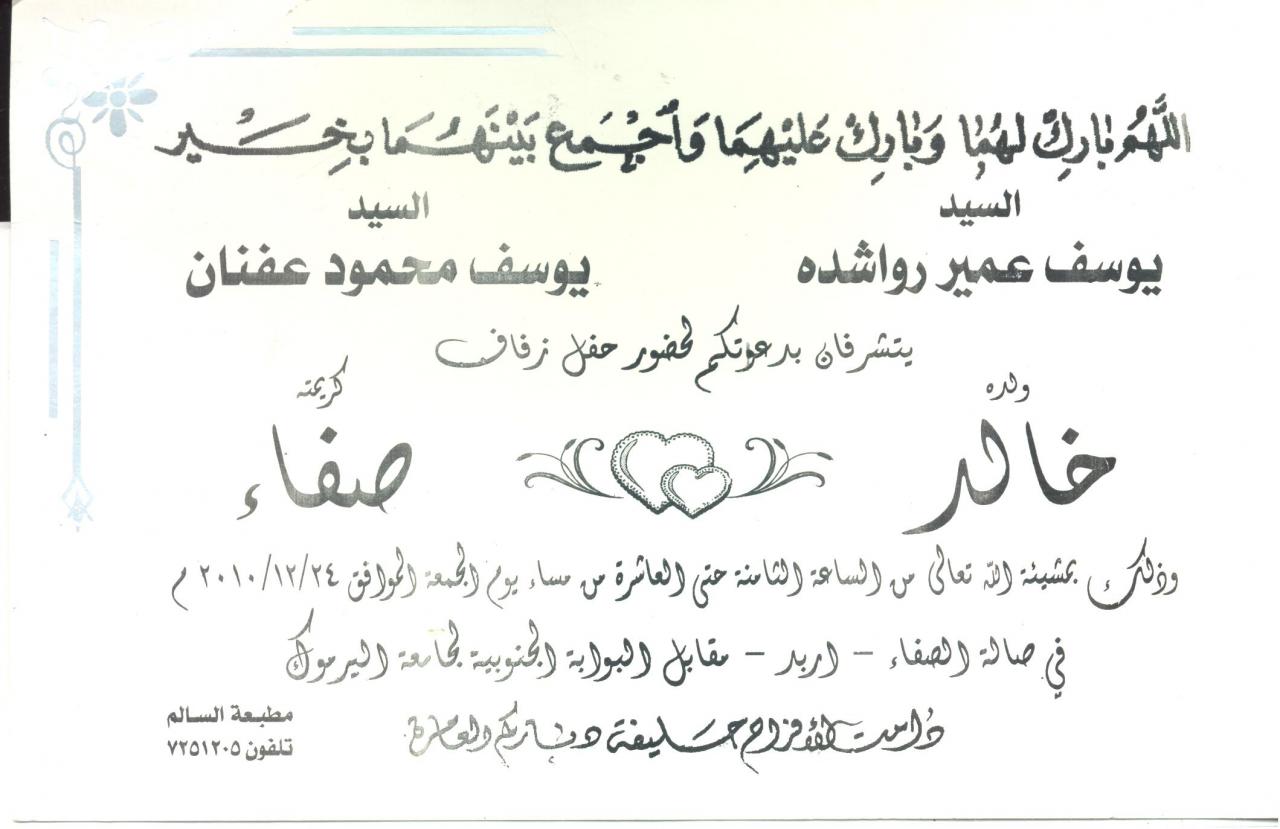 اللَّهُمَّ بَارِكْ لَهُمَا وَبَارِكْ عَلَيْهِمَا وَأَجْمَعْ بَيْنَهُمَا بِخَيْرٍ
السيد السيد
يوسف عمير رواشده يوسف محمود عفنان
يتشرفان بدعوتكم لحضور حفل زفاف
ولده كريمته
خالد صفاء
وذلك بمشيئة الله تعالى من الساعة الثامنة حتى العاشرة من مساء يوم الجمعة الموافق ٢٠١٠/١٢/٢٤ م
في صالة الصفاء - اربد - مقابل البوابة الجنوبية لجامعة اليرموك
دامت الأفراح حليفة دياركم العامرة
مطبعة السالم
تلفون ٧٢٥١٢٠٥